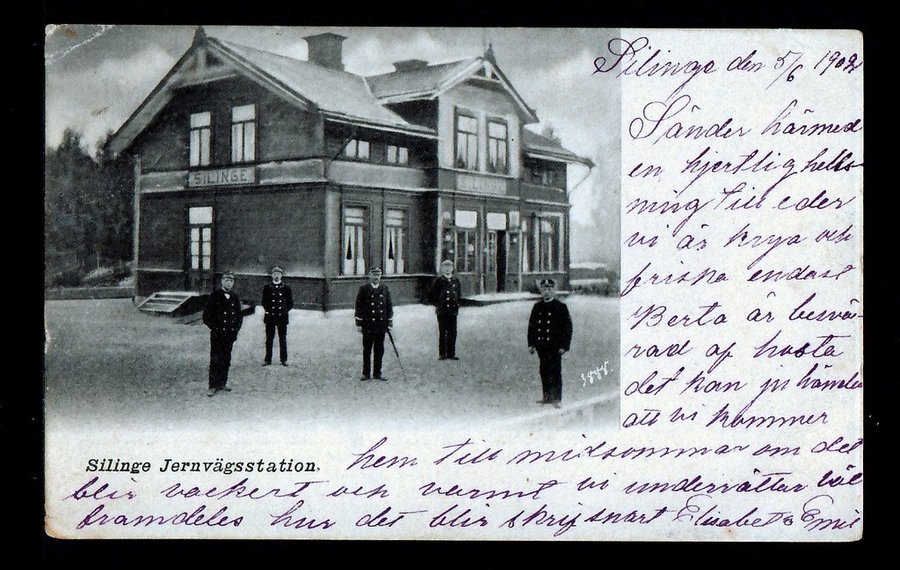 SILINGE
SILINGE
3888.
Silinge Jernvägsstation.
Silinge den 5/6 1902
Sänder härmed
en hjertlig hells-
ning till eder
vi är krya och
friska endast
Berta är besvä-
rad af hosta
det kan ju hända
att vi kommer
hem till midsommar om det
blir vackert och varmt vi underrättar väl
framdeles hur det blir skrif snart Elisabeth Emil